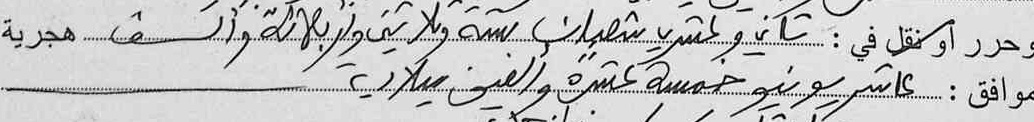 وحرر أو نقل في : ثاني وعشرين شعبان ستة وثلاثين وأربعمائة وألف هجرية
موافق : عاشر يونيو خمسة عشرة وألفين ميلادية